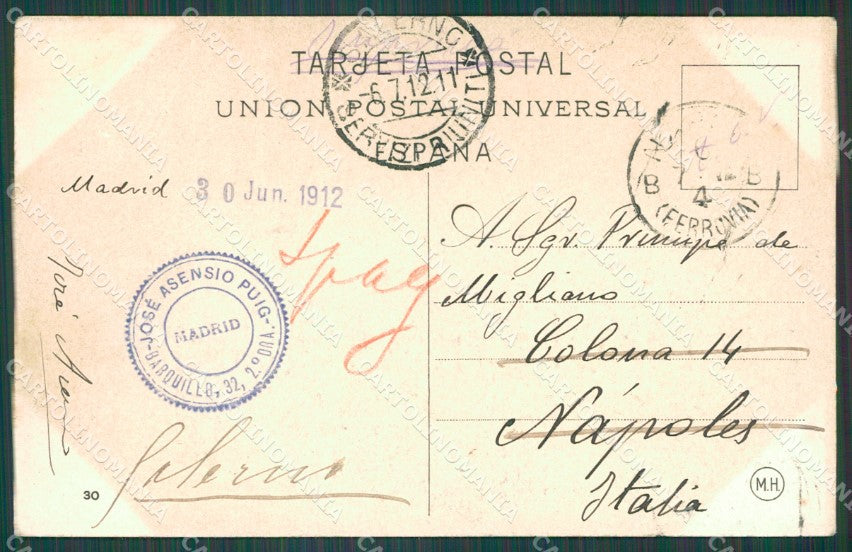 TARJETA POSTAL
UNION POSTAL UNIVERSAL
ESPAÑA
SALERNO
-6.7.12.11
SERVIZI RIUNITI
B 4 B
(FERROVIA)
Madrid 30 Jun. 1912
JOSÉ ASENSIO PUIG
MADRID
BARQUILLO, 32, 2.º DRA.
José
A. Sgr. Principe de
Migliano
Colona 14
Nápoles
Italia
Salerno
30
M.H
CARTOLINOMANIA